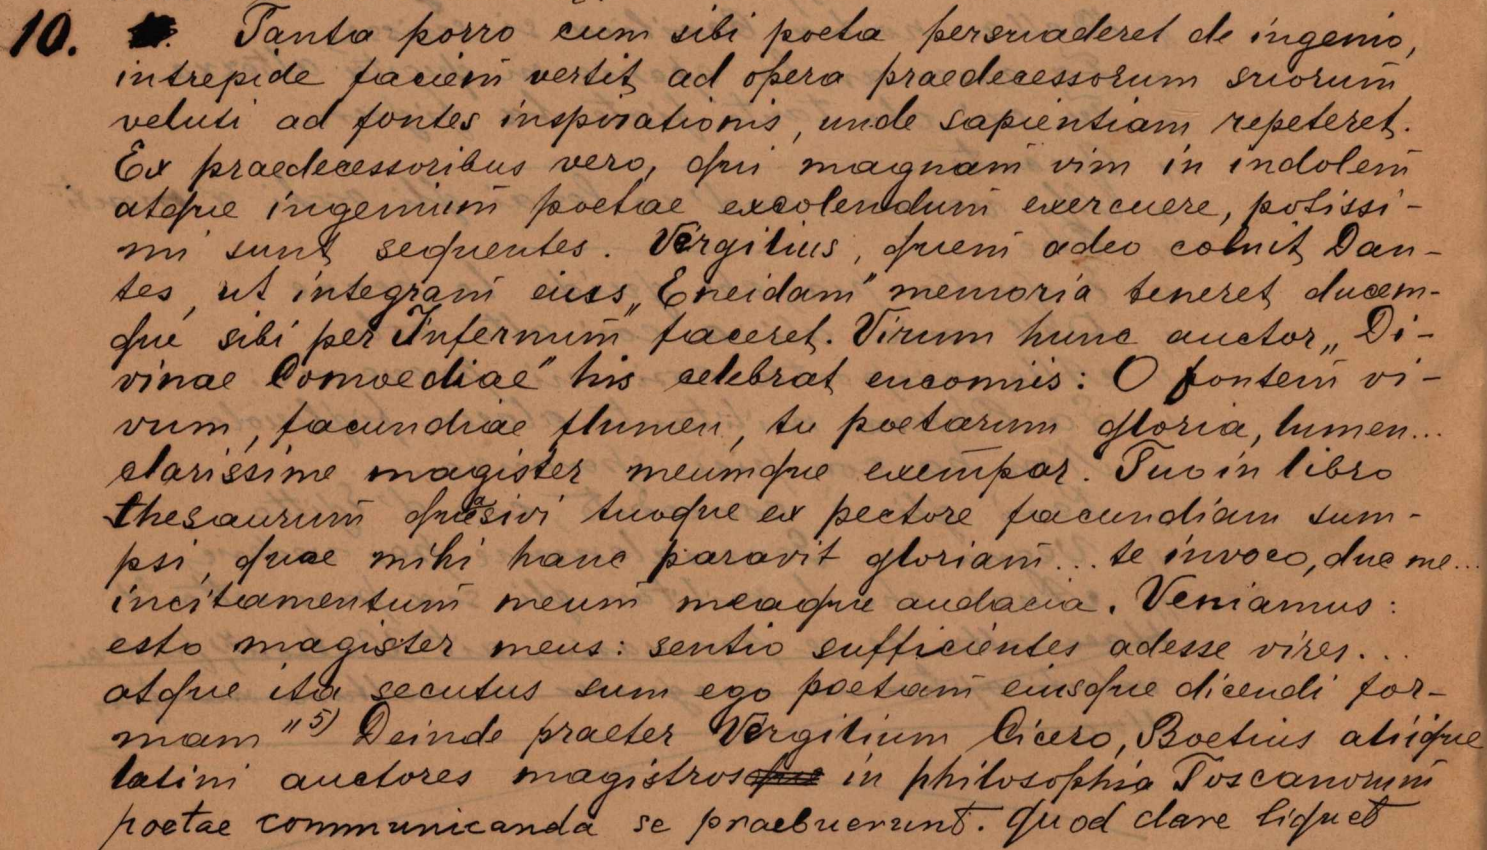 10. Tanta porro cum sibi poeta persuaderet de ingenio,
intrepide faciem vertit ad opera praedecessorum suorum
veluti ad fontes inspirationis, unde sapientiam repeteret.
Ex praedecessoribus vero, qui magnam vim in indolem
atque ingenium poetae excolendum exercuere, potissi-
mi sunt sequentes. Vergilius, quem adeo coluit Dan-
tes, ut integram eius „Eneidam" memoria teneret ducem-
que sibi per Infernum faceret. Virum hunc auctor „Di-
vinae Comoediae" his celebrat encomiis: O fontem vi-
vum, facundiae flumen, tu poetarum gloria, lumen...
clarissime magister meumque exempar. Tuo in libro
thesaurum quaesivi tuoque ex pectore facundiam sum-
psi, quae mihi hanc paravit gloriam... te invoco, duc me...
incitamentum meum meaque audacia. Veniamus:
esto magister meus: sentio sufficientes adesse vires...
atque ita secutus sum ego poetam eiusque dicendi for-
mam" 5) Deinde praeter Vergilium Cicero, Boetius aliique
latini auctores magistros in philosophia Toscanorum
poetae communicanda se praebuerunt. Quod clare liquet